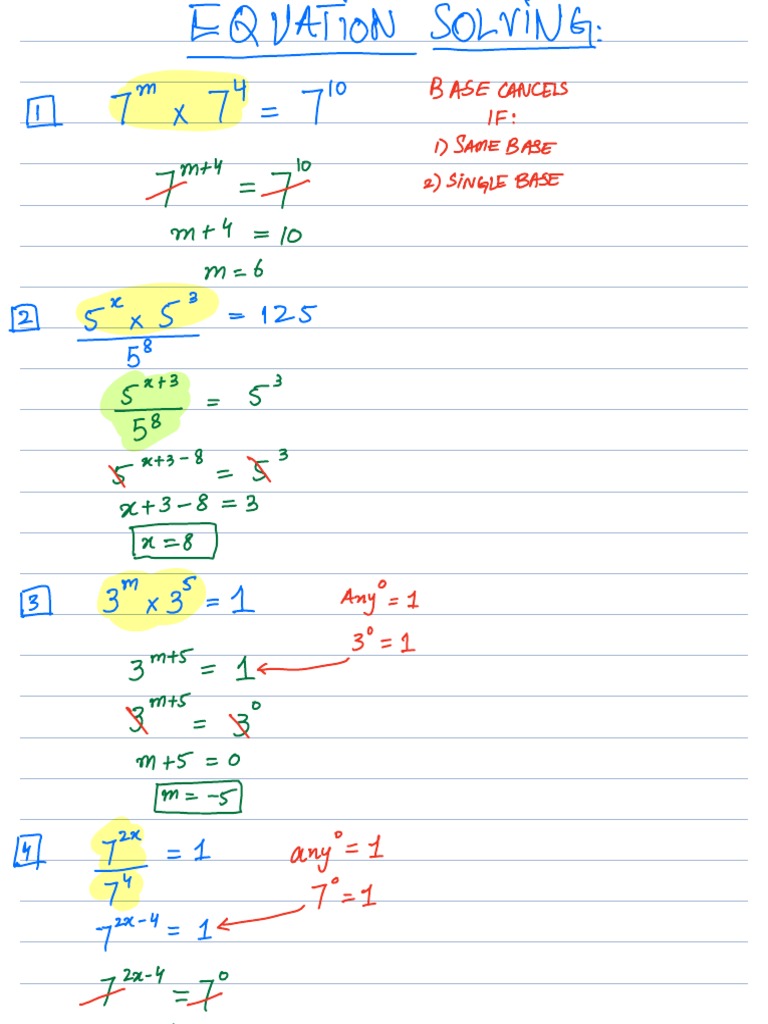 EQUATION SOLVING:
1 7^m × 7^4 = 7^10
BASE CANCELS
IF:
1) SAME BASE
2) SINGLE BASE
7^(m+4) = 7^10
m+4 = 10
m = 6
2 (5^x × 5^3)/5^8 = 125
5^(x+3)/5^8 = 5^3
5^(x+3-8) = 5^3
x+3-8 = 3
x = 8
3 3^m × 3^5 = 1
Any^0 = 1
3^0 = 1
3^(m+5) = 1
3^(m+5) = 3^0
m+5 = 0
m = -5
4 7^(2x)/7^4 = 1
any^0 = 1
7^0 = 1
7^(2x-4) = 1
7^(2x-4) = 7^0